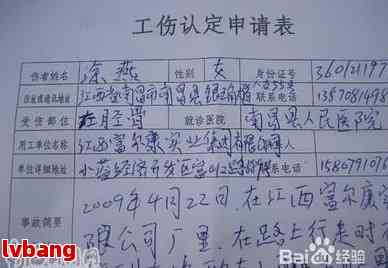 工伤认定申请表
伤者姓名 涂燕 性别 女 身份证号 360121197
住址或通讯地址 江西省南昌市南昌县 联系电话 1357081498
受伤部位 就诊医院 南昌县人民医院
用工单位名称 江西富尔康实业集团有限公司
单位详细地址 小蓝经济开发区富山 路 联系电话 158079101
事故简要 2009年4月22日,在江西富尔康实
限公司厂里,在路上行走时
lvbang
Bai 百度经验